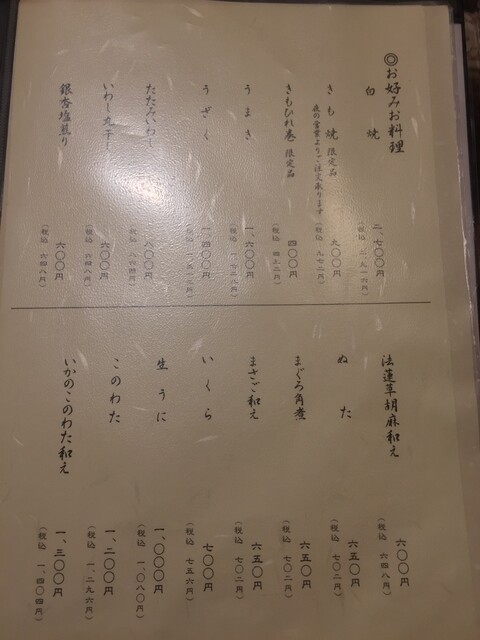 ◎お好みお料理
白焼
二、七〇〇円
(税込 二、九一六円)
きも焼 限定品
夜の営業よりご注文承ります
九〇〇円
(税込 九七二円)
きもひれ巻 限定品
四〇〇円
(税込 四三二円)
うまき
一、六〇〇円
(税込 一、七二八円)
うざく
一、四〇〇円
(税込 一、五一二円)
たたみいわし
八〇〇円
(税込 八六四円)
いわし丸干し
六〇〇円
(税込 六四八円)
銀杏塩煎り
六〇〇円
(税込 六四八円)
法蓮草胡麻和え
六〇〇円
(税込 六四八円)
ぬた
六五〇円
(税込 七〇二円)
まぐろ角煮
六五〇円
(税込 七〇二円)
まさご和え
六五〇円
(税込 七〇二円)
いくら
七〇〇円
(税込 七五六円)
生うに
一、〇〇〇円
(税込 一、〇八〇円)
このわた
一、二〇〇円
(税込 一、二九六円)
いかのこのわた和え
一、三〇〇円
(税込 一、四〇四円)